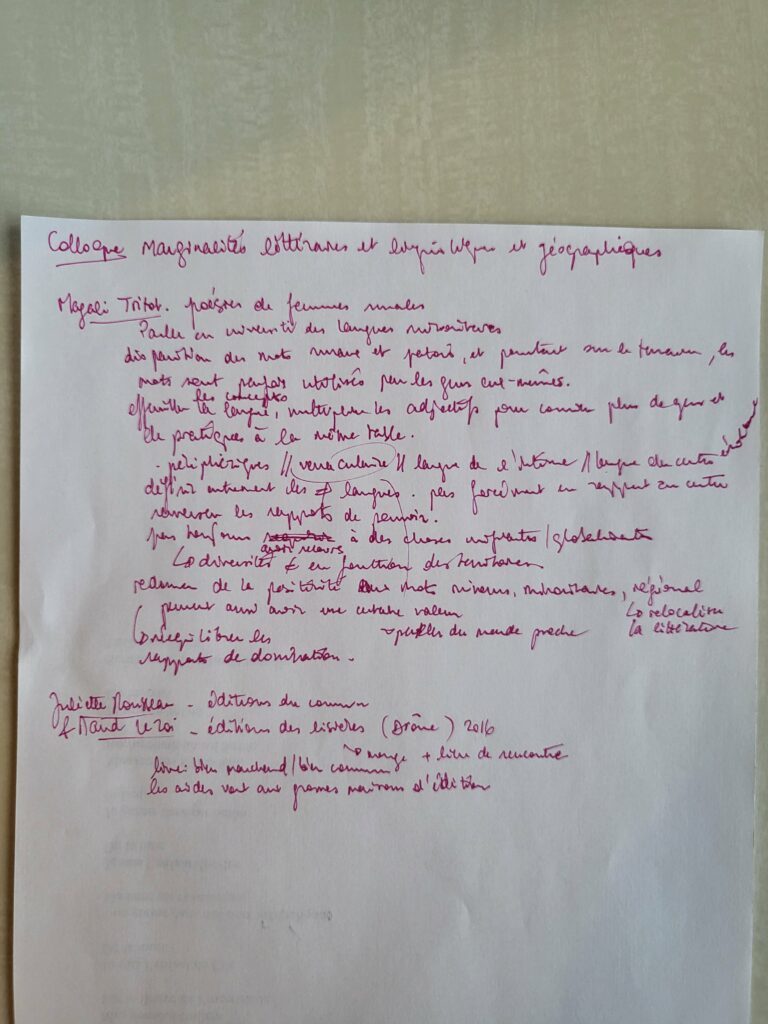 Colloque Marginalités littéraires et linguistiques et géographiques
Magali Tritot. poésies de femmes rurales
Parler en université des langues minoritaires
disparition des mots rural et patois, et pourtant sur le terrain, les
mots sont parfois utilisés par les gens eux-mêmes.
les concepts
la langue, multiplier les adjectifs pour convier plus de gens et
de pratiques à la même table.
- périphériques // vernaculaire // langue de l'interne // langue du centre
définir autrement les ≠ langues. pas forcément en rapport au centre
renverser les rapports de pouvoir.
pas toujours avoir recours à des choses /globalisantes
↳ diversités ≠ en fonction des territoires
redonner de la positivité aux mots mineurs, minoritaires, régional
peuvent aussi avoir une certaine valeur
↳ relocaliser
la littérature
↳ rééquilibrer les
rapports de domination.
→ parler du monde proche
Juliette Rousseau - éditions du commun
& Maud Leroi - éditions des lisières (Drôme) 2016
→ marge + lieu de rencontre
livre: bien marchand/bien commun
les aides vont aux grosses maisons d'édition